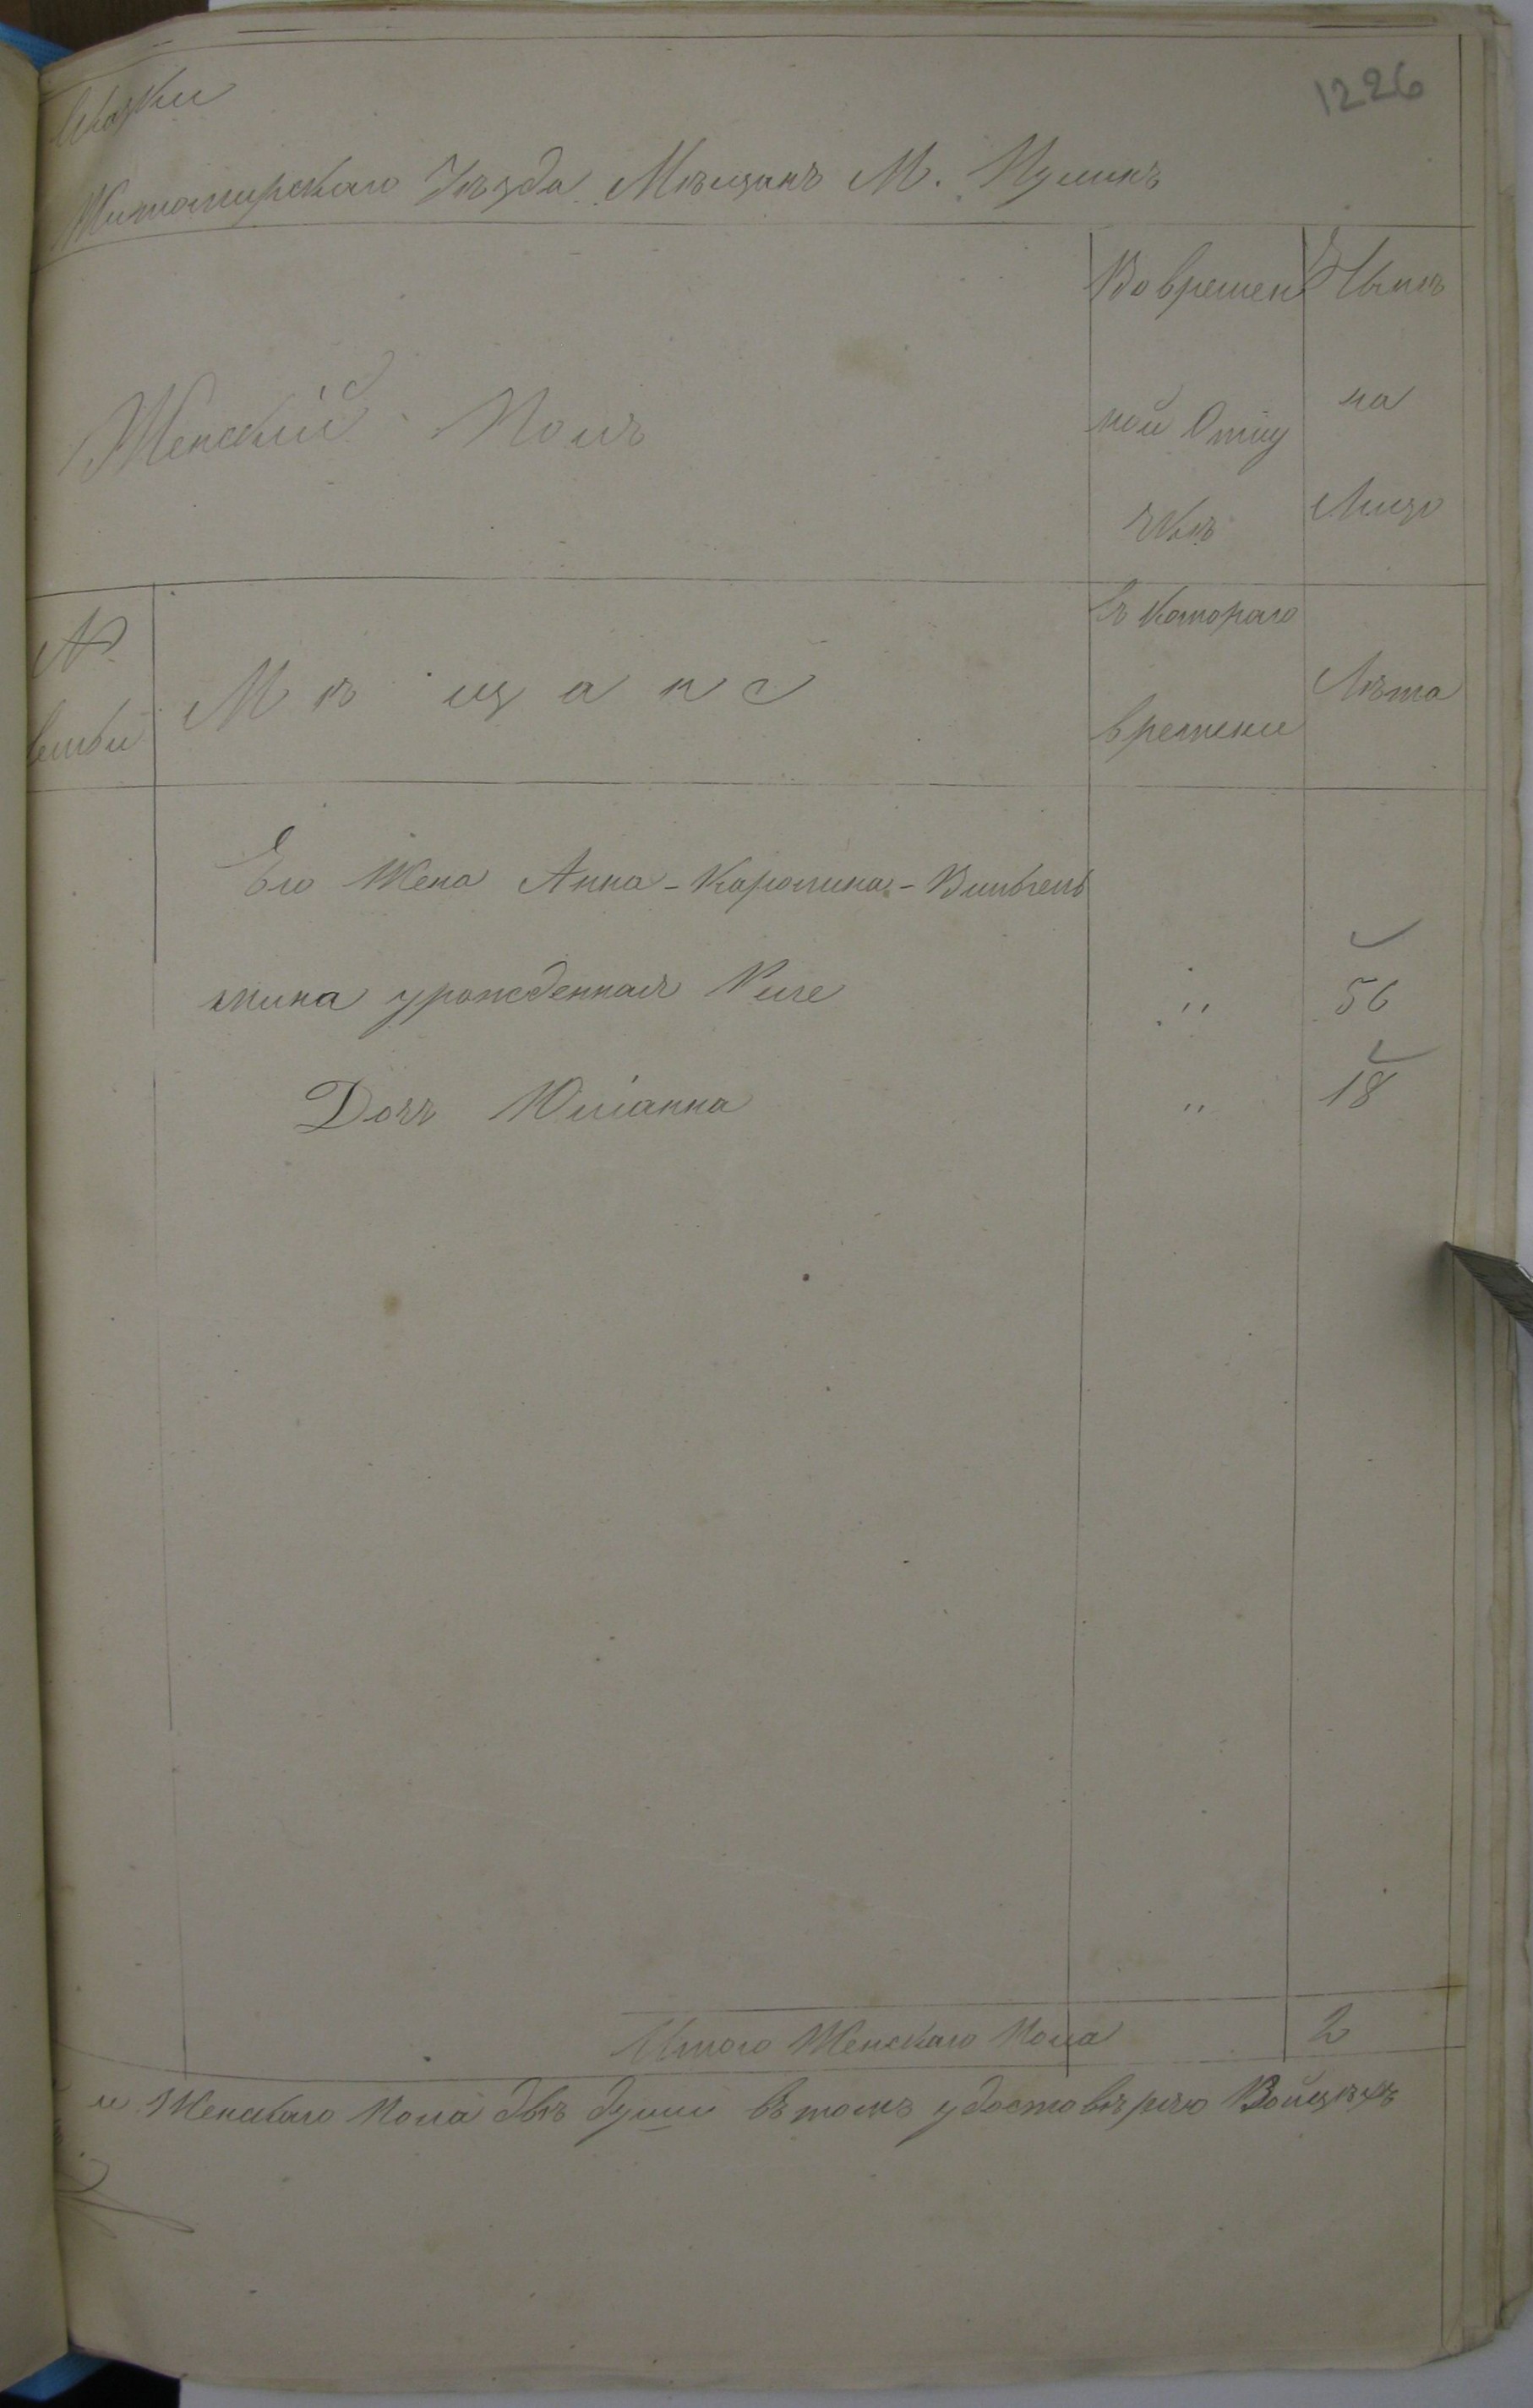 1226
Сказки
Житомирскаго Уѣзда Мѣщанъ М. Пулинъ
Женскій Полъ
Во времен
ной Отлу
чкѣ
Нынѣ
на
Лицо
№
семьи
Мѣщане
Съ котораго
времени
Лѣта
Его Жена Анна-Каролина-Вильгель
мина урожденная
" 56
Дочъ Юліанна " 18
Итого Женскаго Пола 2
и Женскаго Пола двѣ души въ томъ удостовѣряю